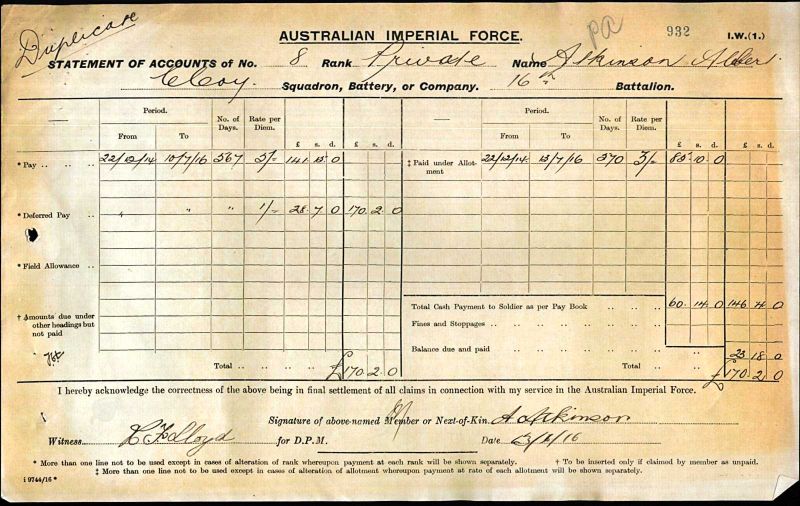 Duplicate
AUSTRALIAN IMPERIAL FORCE.
pa
932
I.W.(1.)
STATEMENT OF ACCOUNTS of No. 8 Rank Private Name Atkinson Albert
C Coy. Squadron, Battery, or Company. 16th Battalion.
Period. No. of Days. Rate per Diem. Period. No. of Days. Rate per Diem.
From To £ s. d. £ s. d. From To £ s. d. £ s. d.
* Pay .. .. .. 22/12/14 10/7/16 567 5/- 141 15 0 ‡ Paid under Allotment 22/12/14 13/7/16 570 3/- 85 10 0
* Deferred Pay .. " " " 1/- 28 7 0 170 2 0
* Field Allowance ..
Total Cash Payment to Soldier as per Pay Book .. .. .. 60 14 0 146 4 0
† Amounts due under other headings but not paid
Fines and Stoppages .. .. .. .. .. ..
Balance due and paid .. .. .. .. .. 23 18 0
Total .. .. .. £ 170 2 0 Total .. .. .. £ 170 2 0
I hereby acknowledge the correctness of the above being in final settlement of all claims in connection with my service in the Australian Imperial Force.
Signature of above-named Member or Next-of-Kin. A Atkinson
Witness Lloyd for D.P.M. Date /16
* More than one line not to be used except in cases of alteration of rank whereupon payment at each rank will be shown separately. † To be inserted only if claimed by member as unpaid.
‡ More than one line not to be used except in cases of alteration of allotment whereupon payment at rate of each allotment will be shown separately.
i 9744/16 *